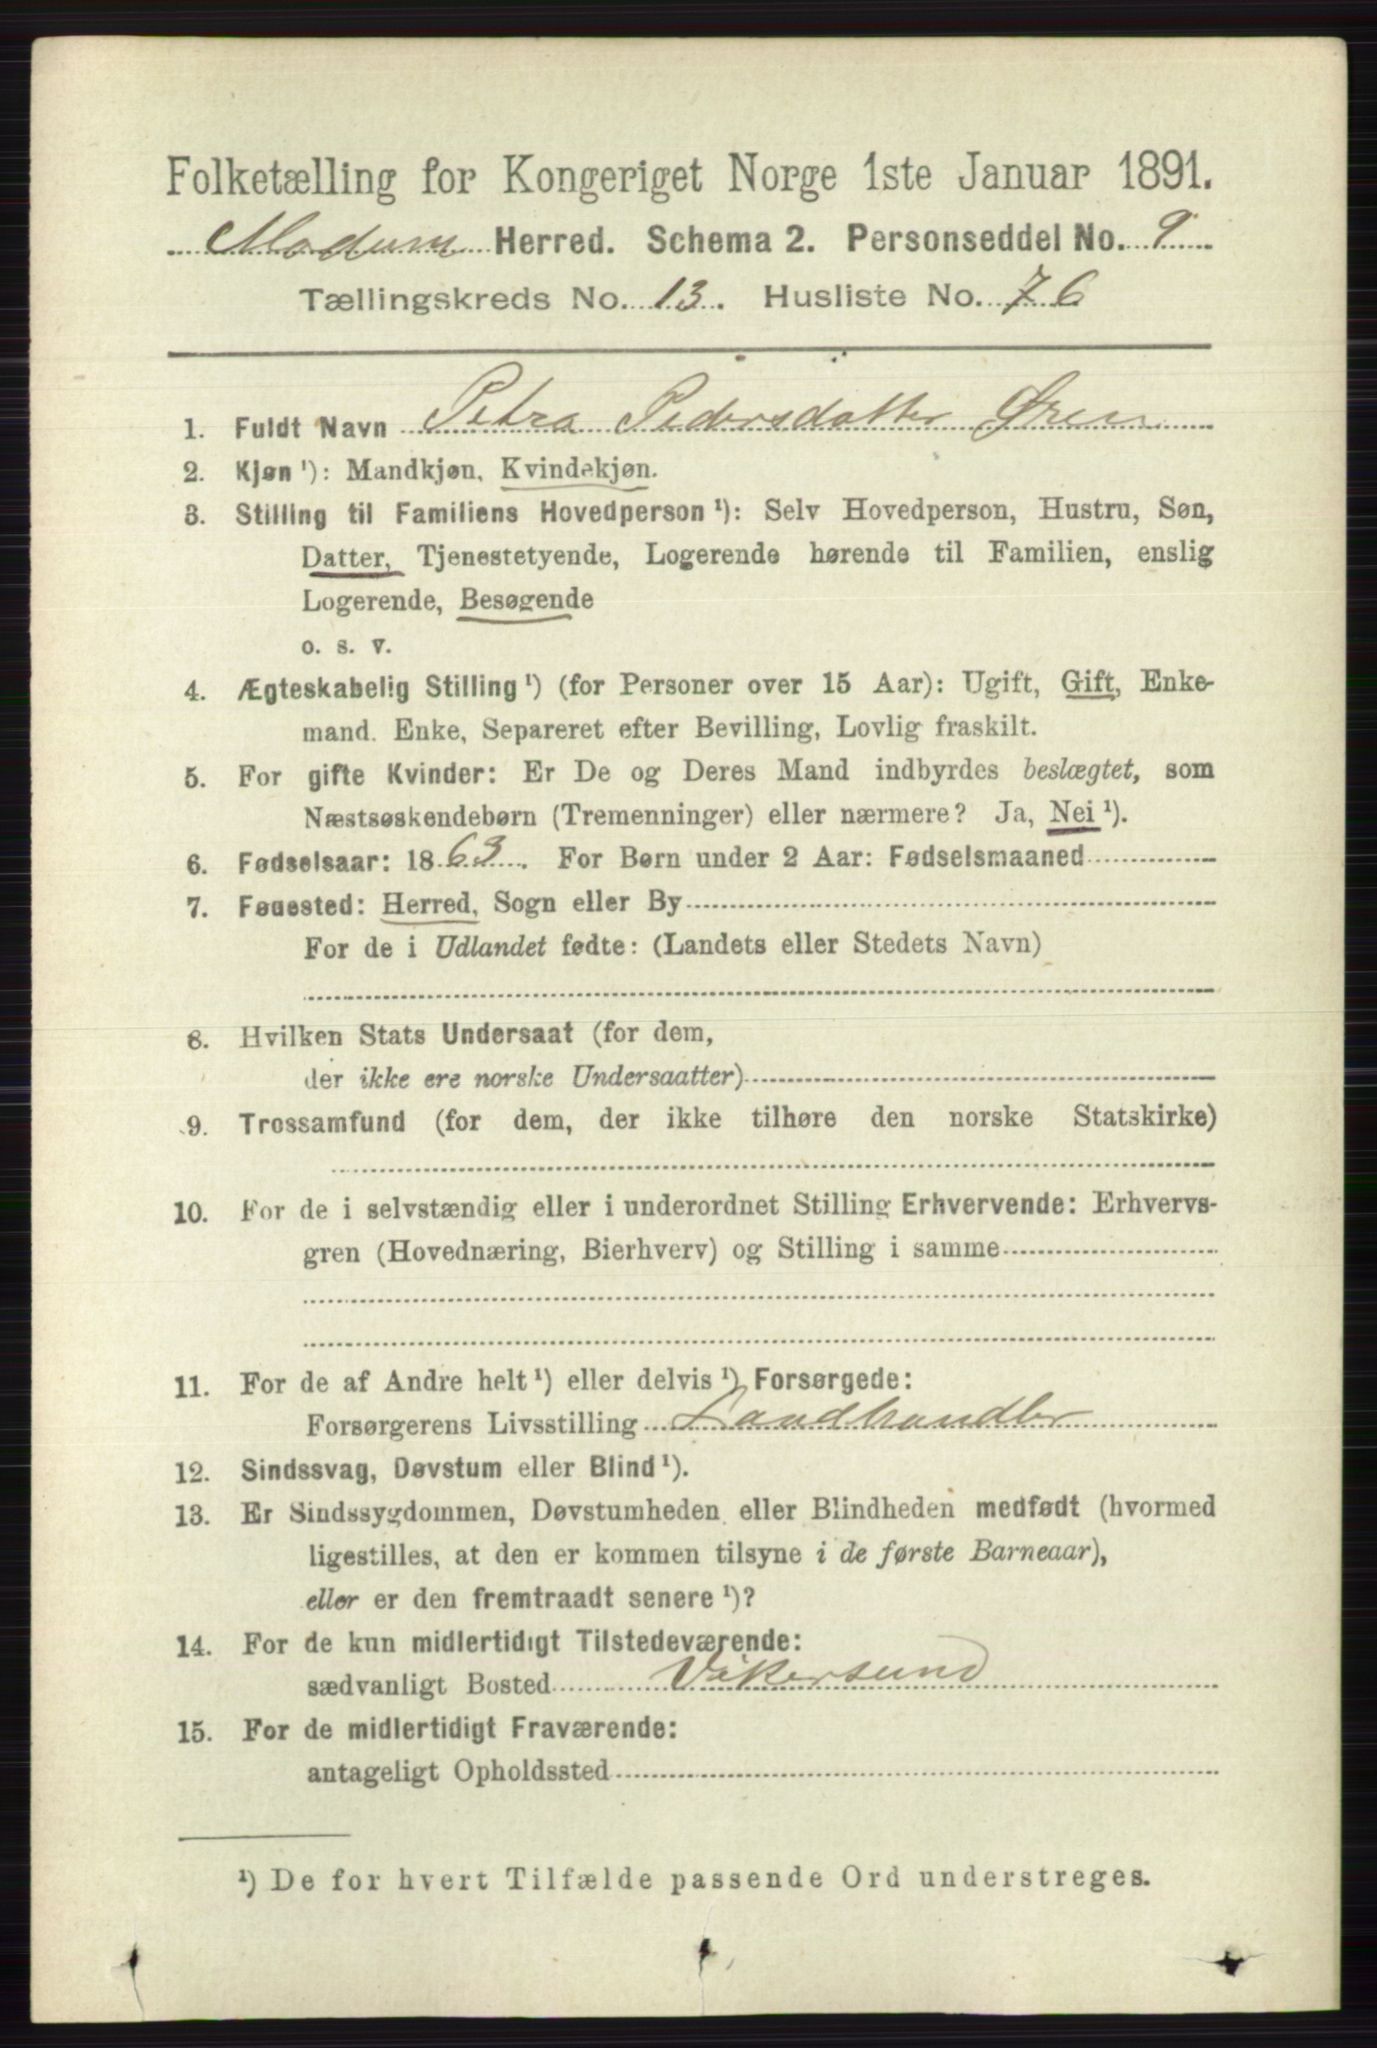 Folketælling for Kongeriget Norge 1ste Januar 1891.
Modum Herred. Schema 2. Personseddel No. 9
Tællingskreds No. 13. Husliste No. 76
1. Fuldt Navn Petra Pedersdatter Øren
2. Kjøn¹): Mandkjøn, Kvindekjøn.
3. Stilling til Familiens Hovedperson¹): Selv Hovedperson, Hustru, Søn,
Datter, Tjenestetyende, Logerende hørende til Familien, enslig
Logerende, Besøgende
o. s. v.
4. Ægteskabelig Stilling¹) (for Personer over 15 Aar): Ugift, Gift, Enke-
mand. Enke, Separeret efter Bevilling, Lovlig fraskilt.
5. For gifte Kvinder: Er De og Deres Mand indbyrdes beslægtet, som
Næstsøskendebørn (Tremenninger) eller nærmere? Ja, Nei¹).
6. Fødselsaar: 1863. For Børn under 2 Aar: Fødselsmaaned
7. Fødested: Herred, Sogn eller By
For de i Udlandet fødte: (Landets eller Stedets Navn)
8. Hvilken Stats Undersaat (for dem,
der ikke ere norske Undersaatter)
9. Trossamfund (for dem, der ikke tilhøre den norske Statskirke)
10. For de i selvstændig eller i underordnet Stilling Erhvervende: Erhvervs-
gren (Hovednæring, Bierhverv) og Stilling i samme
11. For de af Andre helt¹) eller delvis¹) Forsørgede:
Forsørgerens Livsstilling Landhandler
12. Sindssvag, Døvstum eller Blind¹).
13. Er Sindssygdommen, Døvstumheden eller Blindheden medfødt (hvormed
ligestilles, at den er kommen tilsyne i de første Barneaar),
eller er den fremtraadt senere¹)?
14. For de kun midlertidigt Tilstedeværende:
sædvanligt Bosted Vikersund
15. For de midlertidigt Fraværende:
antageligt Opholdssted
¹) De for hvert Tilfælde passende Ord understreges.